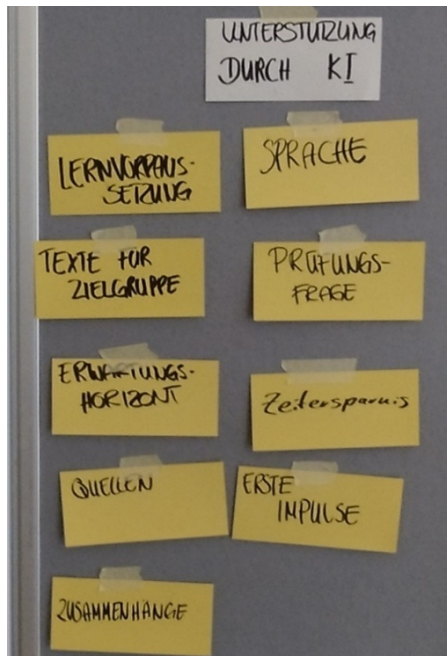 UNTERSTÜTZUNG
DURCH KI
LERNVORAUS-
SETZUNG
SPRACHE
TEXTE FÜR
ZIELGRUPPE
PRÜFUNGS-
FRAGE
ERWARTUNGS-
HORIZONT
Zeitersparnis
QUELLEN
ERSTE
IMPULSE
ZUSAMMENHÄNGE